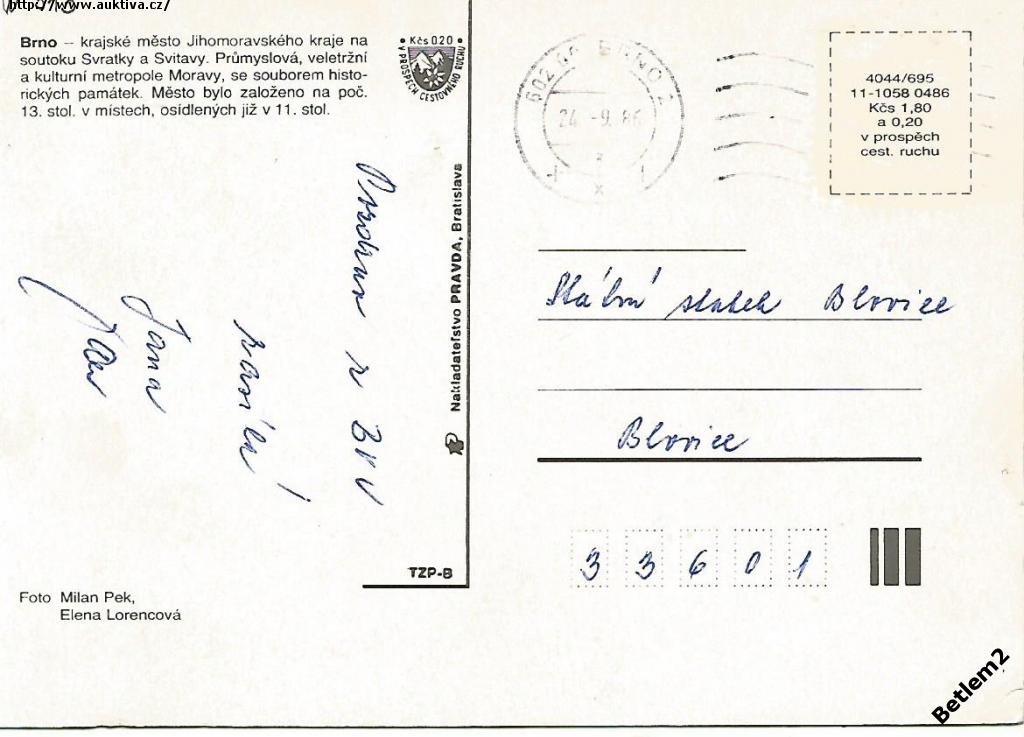 http://www.auktiva.cz/
Brno – krajské město Jihomoravského kraje na
soutoku Svratky a Svitavy. Průmyslová, veletržní
a kulturní metropole Moravy, se souborem histo-
rických památek. Město bylo založeno na poč.
13. stol. v místech, osídlených již v 11. stol.
• Kčs 0,20 •
V PROSPĚCH CESTOVNÍHO RUCHU
602 00 BRNO 2
24.-9.86
4044/695
11-1058 0486
Kčs 1,80
a 0,20
v prospěch
cest. ruchu
Pozdrav z BVV
zasílá
Jana
Nakladateľstvo PRAVDA, Bratislava
TZP-B
Státní statek Blovice
Blovice
33601
Foto Milan Pek,
Elena Lorencová
Betlem2